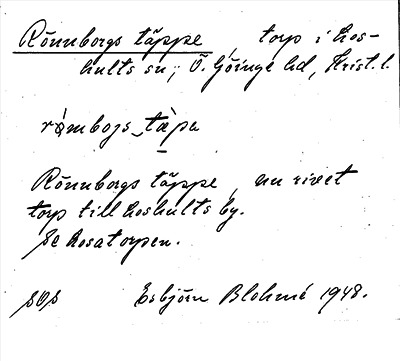 Rönnborgs täppe torp i Kos-
hults sn; Ö. Göinge hd, Krist. l.
römbojs_tàpa
Rönnborgs täppe, nu rivet
torp till Koshults by.
Se Rosatorpen.
SOS Esbjörn Blohmé 1948.